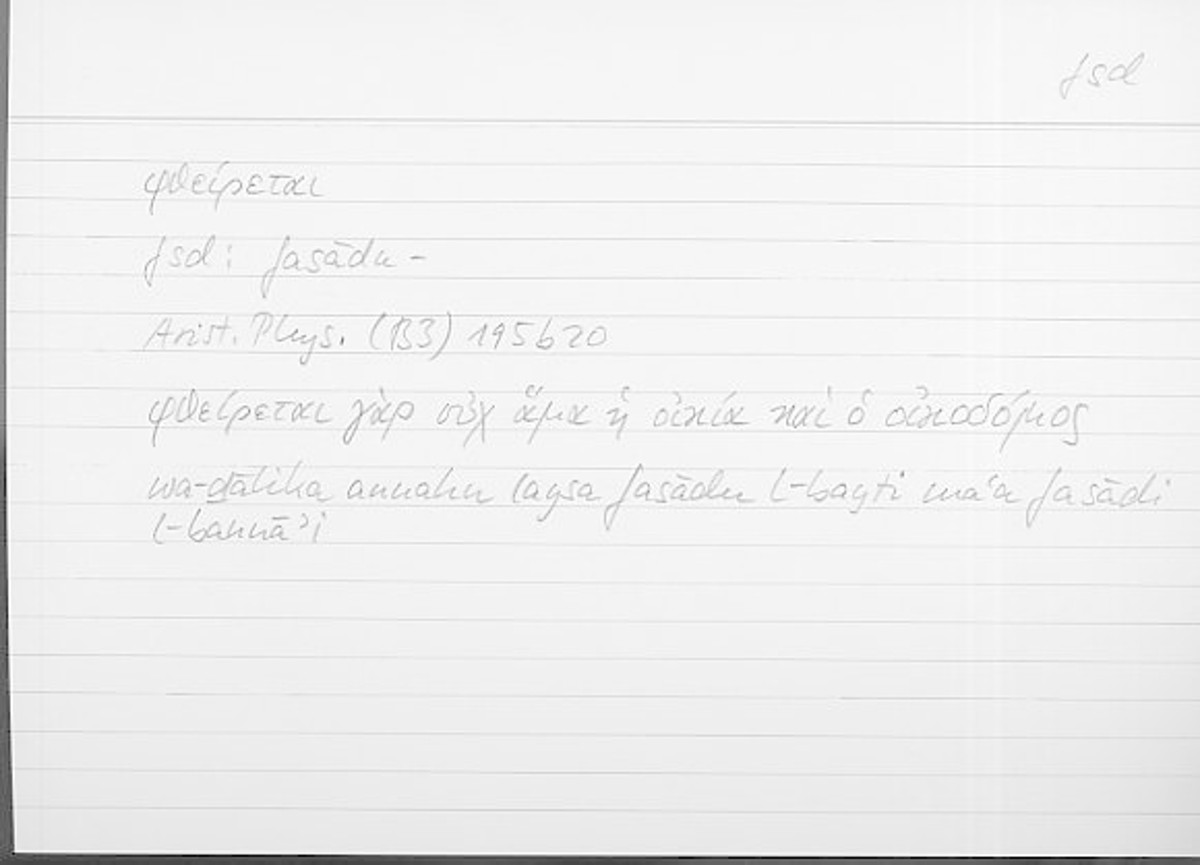 fsd
φθείρεται
fsd: fasādu -
Arist. Phys. (B3) 195b20
φθείρεται γὰρ οὐχ ἅμα ἡ οἰκία καὶ ὁ οἰκοδόμος
wa-ḏālika annahu laysa fasādu l-bayti maʿa fasādi
l-bannāʾi